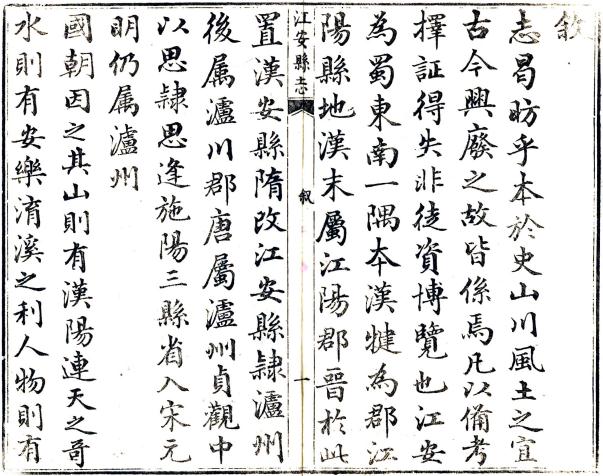 敘
志曷昉乎本於史山川風土之宜
古今興廢之故皆係焉凡以備考
擇証得失非徒資博覽也江安
為蜀東南一隅本漢犍為郡江
陽縣地漢末屬江陽郡晉於此
江安縣志
敘
一
置漢安縣隋改江安縣隸瀘州
後属瀘川郡唐屬瀘州貞觀中
以思隸思逢施陽三縣省入宋元
明仍属瀘州
國朝因之其山則有漢陽連天之奇
水則有安樂淯溪之利人物則有